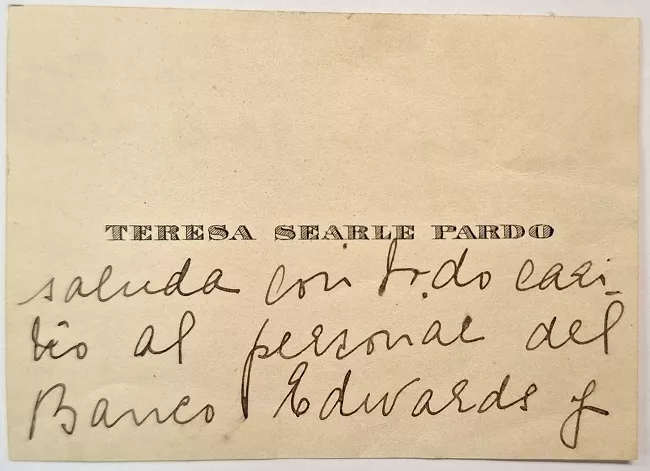 TERESA SEARLE PARDO
saluda con todo cari-
ño al personal del
Banco Edwards y